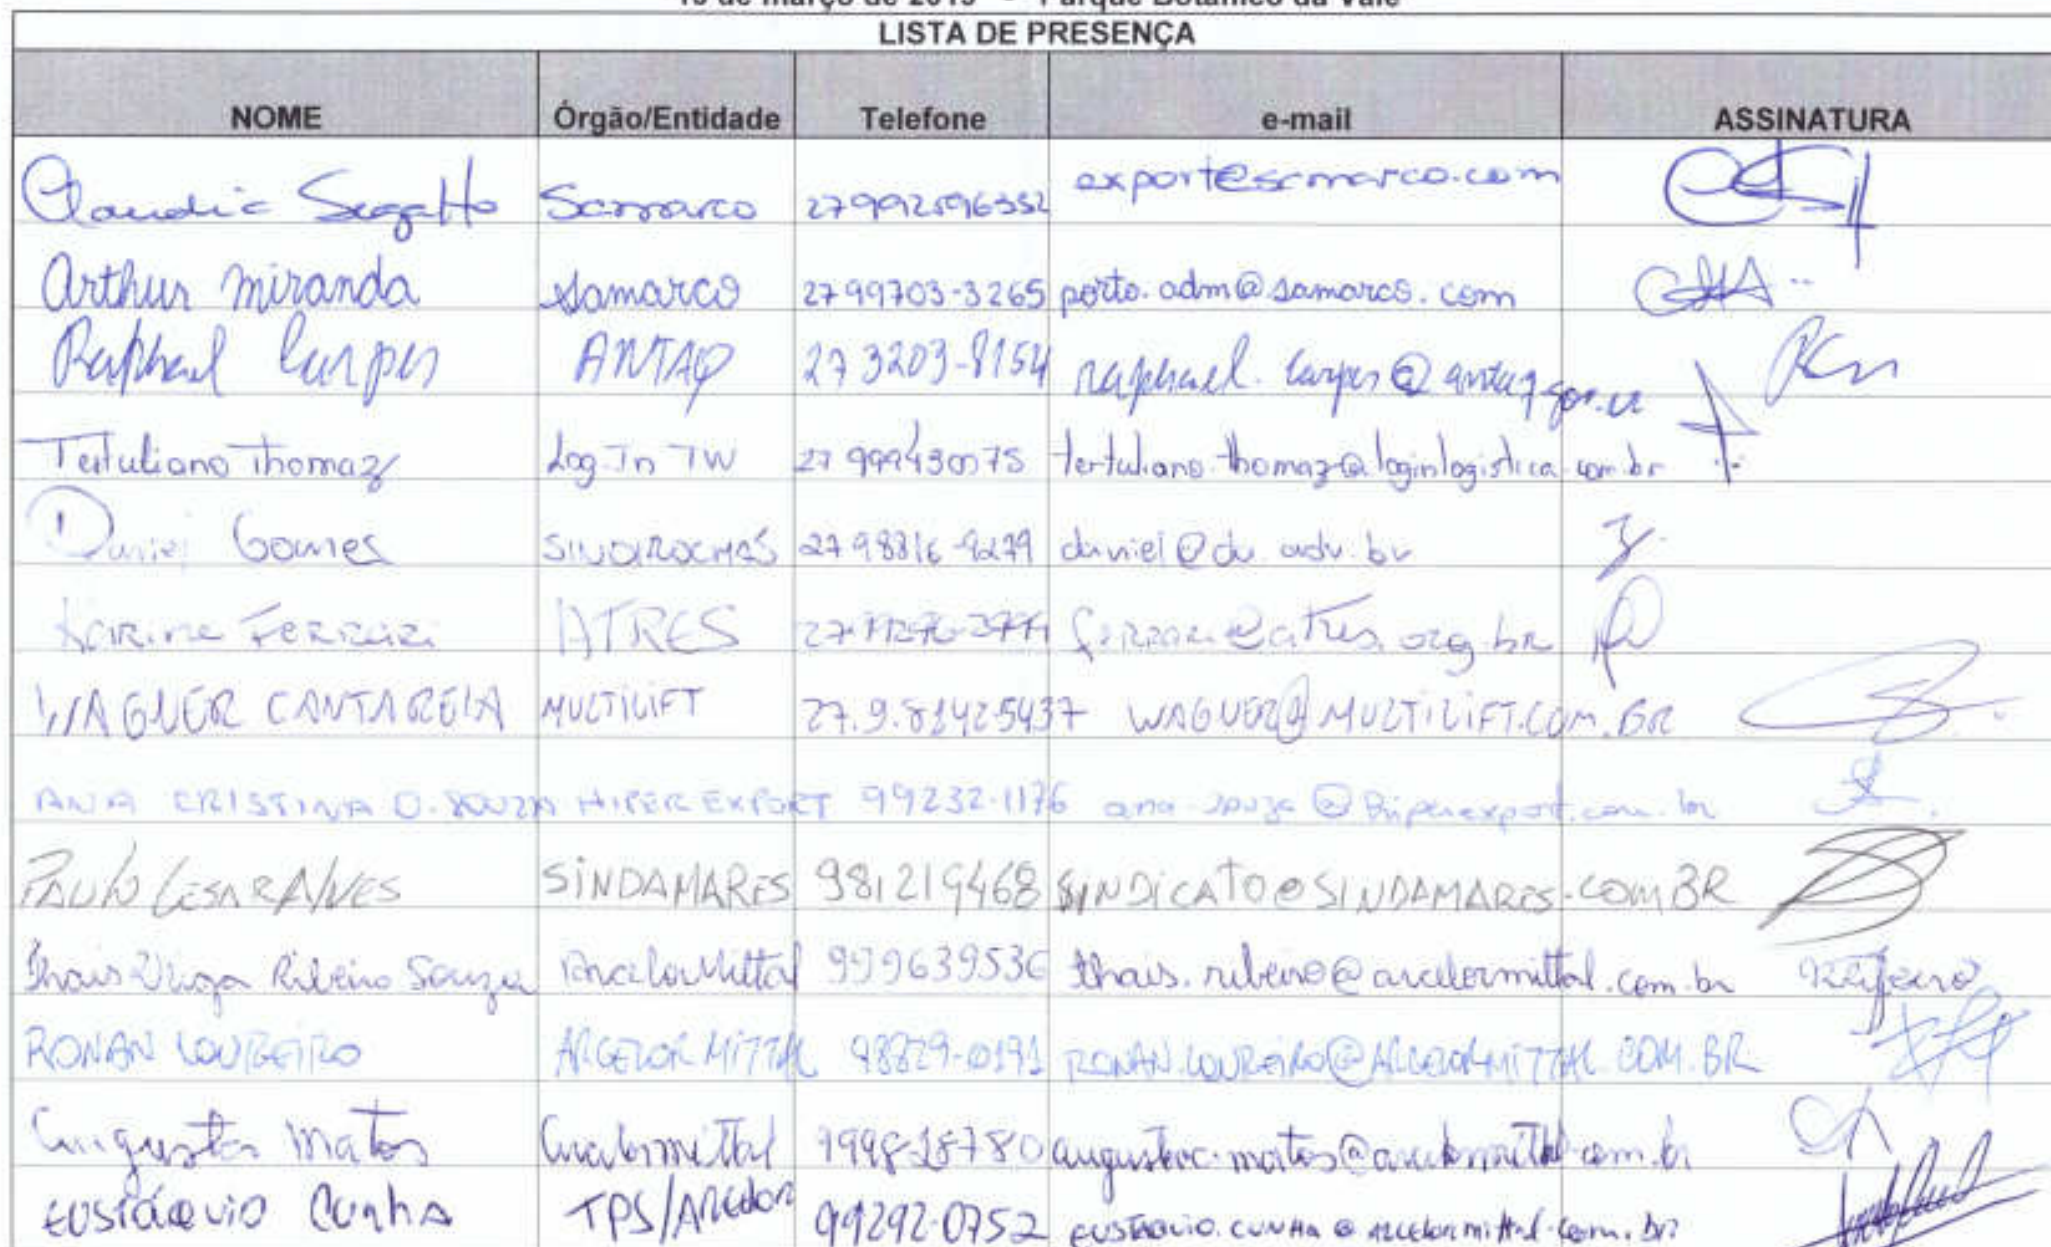 março de 2015 - Parque Botânico da Vale
LISTA DE PRESENÇA
NOME Órgão/Entidade Telefone e-mail ASSINATURA
Claudia Segatto Samarco export@samarco.com
Arthur Miranda Samarco 27 99703-3265 porto.adm@samarco.com
Raphael Carpes ANTAQ 27 3203-8154 raphael.carpes@antaq.gov.br
Tertuliano Thomaz Log-In TW tertuliano.thomaz@loginlogistica.com.br
Daniel Gomes SINDIROCHAS
Karine Ferrari ATRES ferrari@atres.org.br
WAGNER CANTARELA MULTILIFT 27.9.8142-5437 WAGNER@MULTILIFT.COM.BR
ANA CRISTINA O. SOUZA HIPER EXPORT 99232-1176 ana.souza@hiperexport.com.br
PAULO CESAR ALVES SINDAMARES 981219468 SINDICATO@SINDAMARES.COM BR
Thais Ribeiro Souza ArcelorMittal 999639536 thais.ribeiro@arcelormittal.com.br
RONAN LOUREIRO ARCELOR MITTAL 98829-0191 RONAN.LOUREIRO@ARCELORMITTAL.COM.BR
Augusto Matos Arcelormittal
EUSTÁQUIO CUNHA TPS/ARCELOR 99292-0752 EUSTAQUIO.CUNHA@arcelormittal.com.br